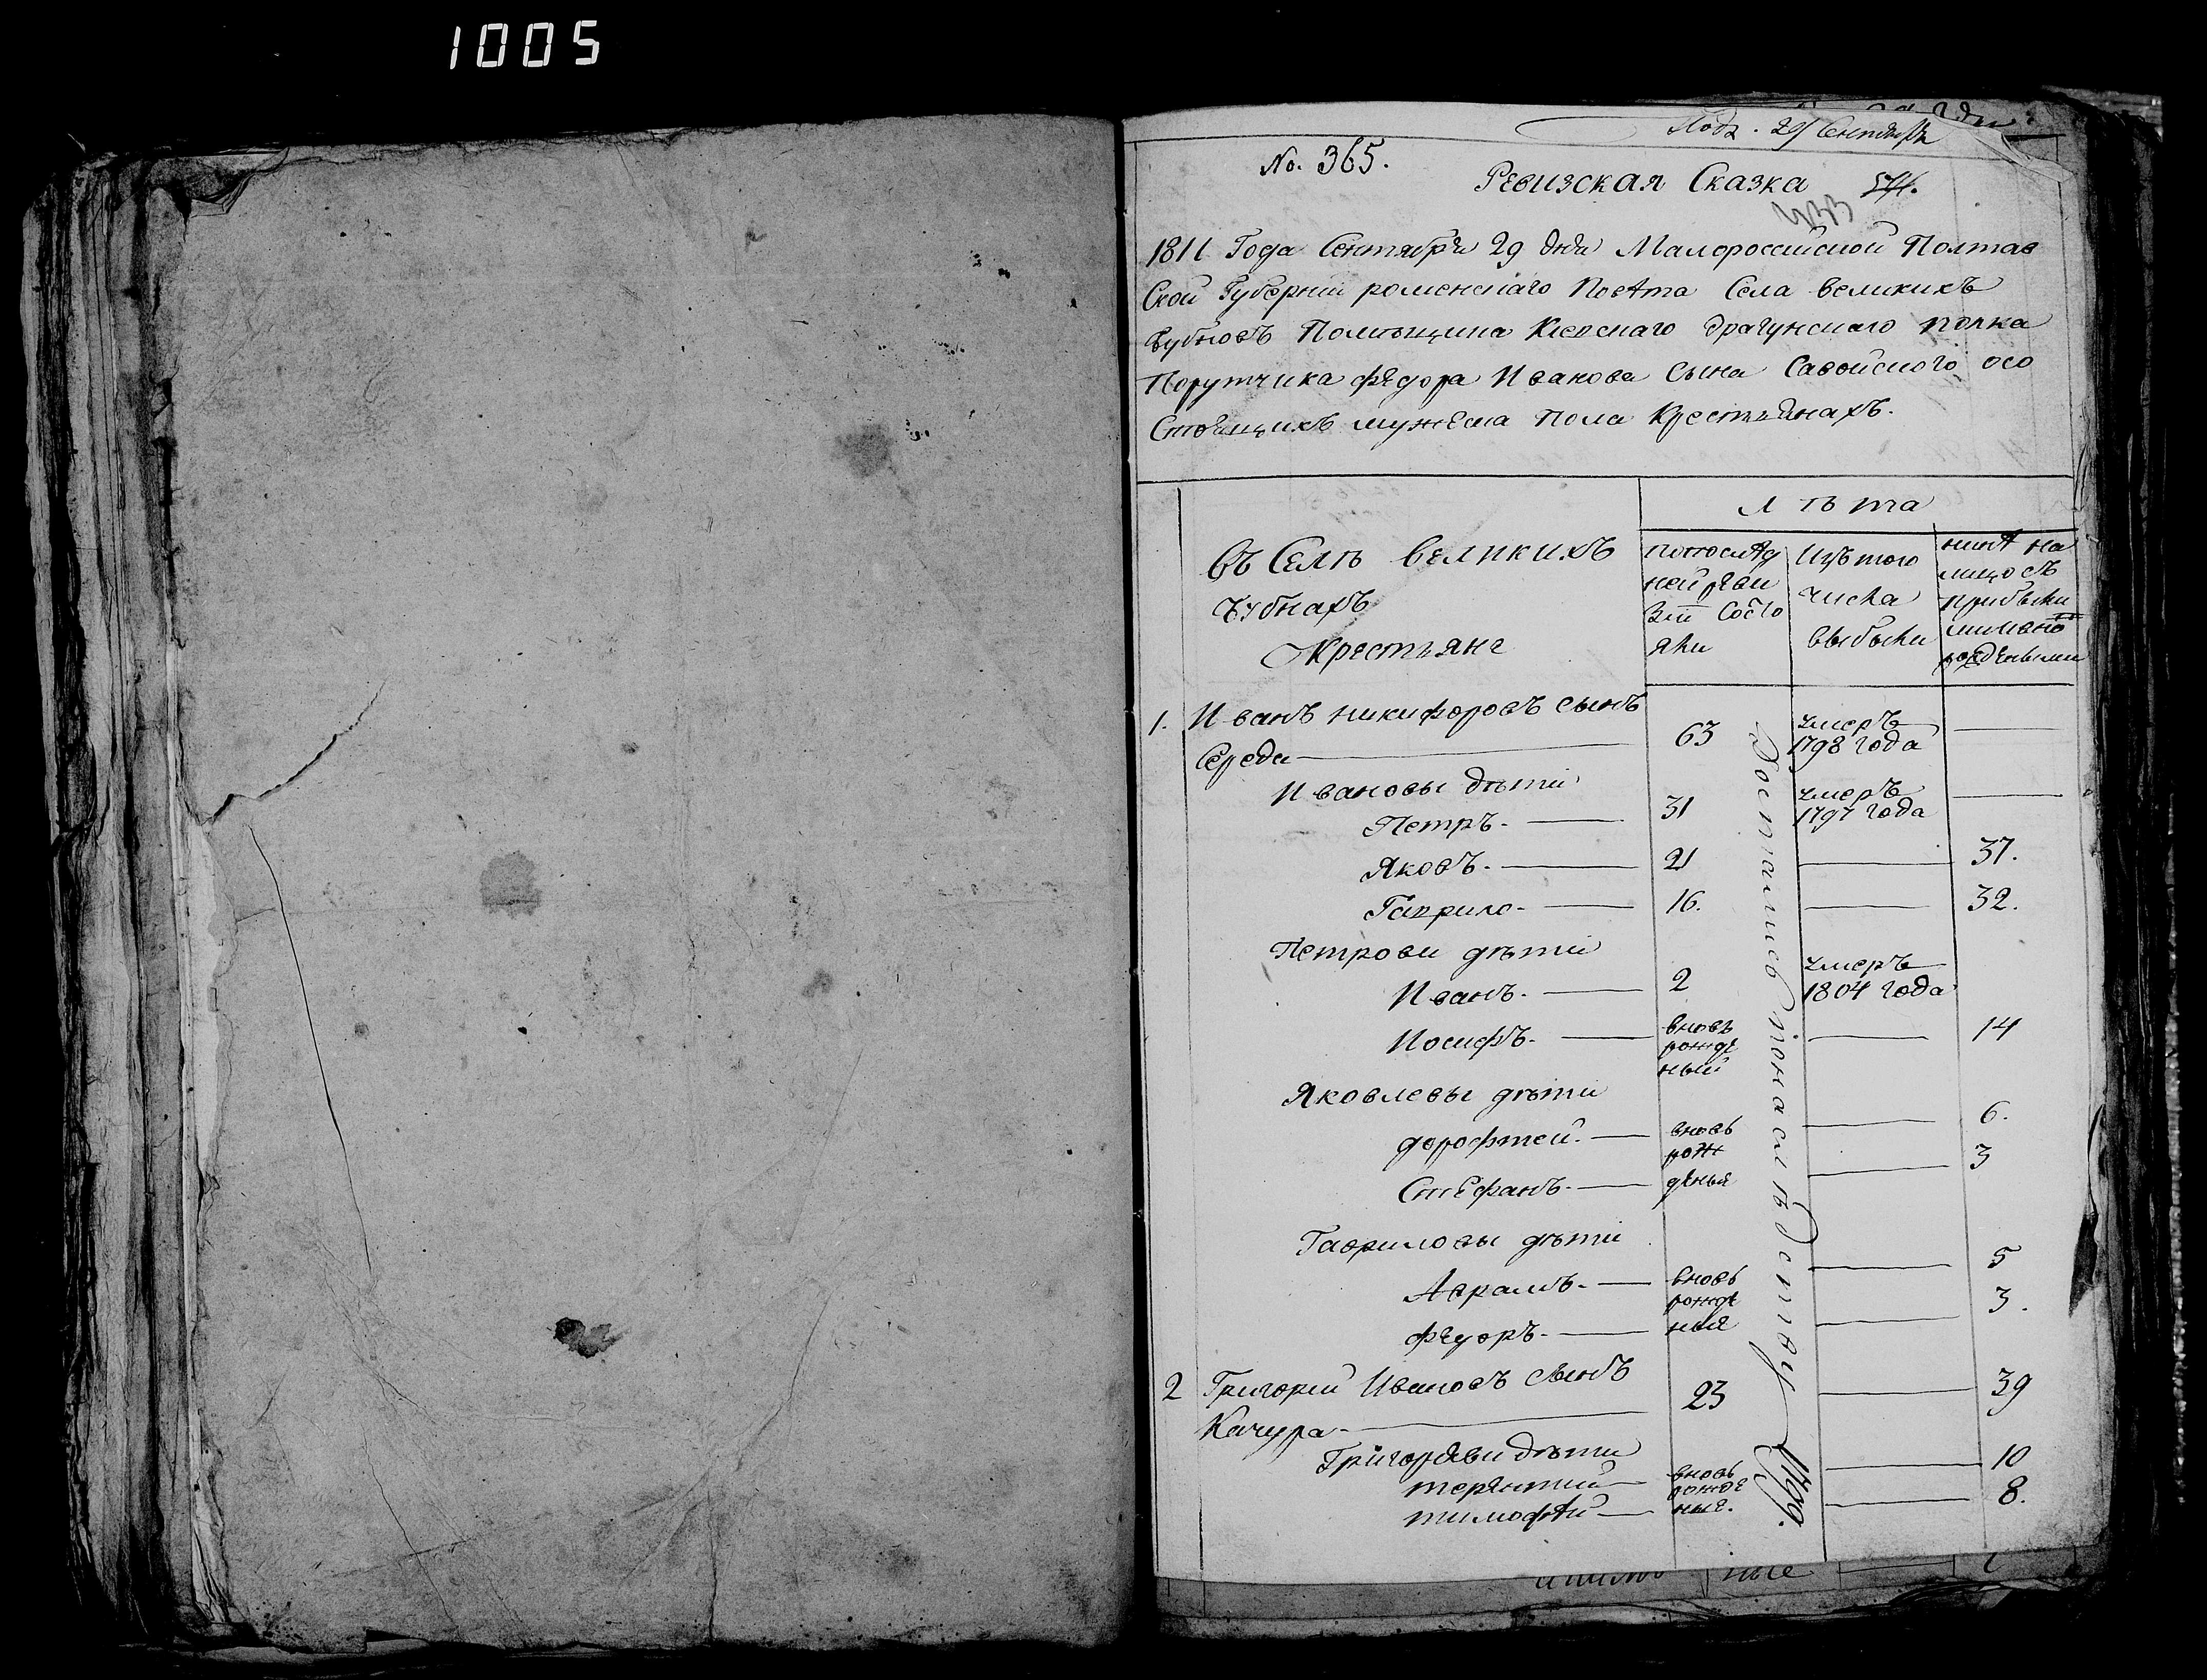 1005
Под. 29 Сентября
No. 365.
Ревизская Сказка 574.
1811 Года Сентября 29 дня Малороссийской Полтав
Ской Губернии роменскаго Повѣта Села великихъ
бубновъ Помѣщика Киевскаго драгунскаго полка
Порутчика федора Иванова Сына Савойского осо
Стоящихъ мужеска пола Крестьянахъ.
Лѣта
въ Селѣ великихъ
бубнахъ
Крестьяне
попослѣд
ней реви
зіи Состо
яли
Изътого
числа
выбыли
нинѣ на
лицо съ
прибыли
мииъвно
рожденными
1. Иванъ никифоровъ сынъ
Середа 63 умеръ
1798 года
Ивановы дѣти
Петръ. 31 умеръ
1797 года
Яковъ. 21 37.
Гаврило 16. 32.
Петрови дѣти
Иванъ. 2 умеръ
1804 года
Иосифъ. вновь
рожде
ный 14
Яковлевы дѣти
дорофтей. вновь
рож 6.
Стефанъ. денья 3
Гавриловы дѣти
Аврамъ. вновь
рожде 5
федоръ. ные 3.
2 Григорий Ивановъ сынъ
Качура 23 39
Григореви дѣти
терентий вновь
рожде 10
тимофѣй ные. 8.